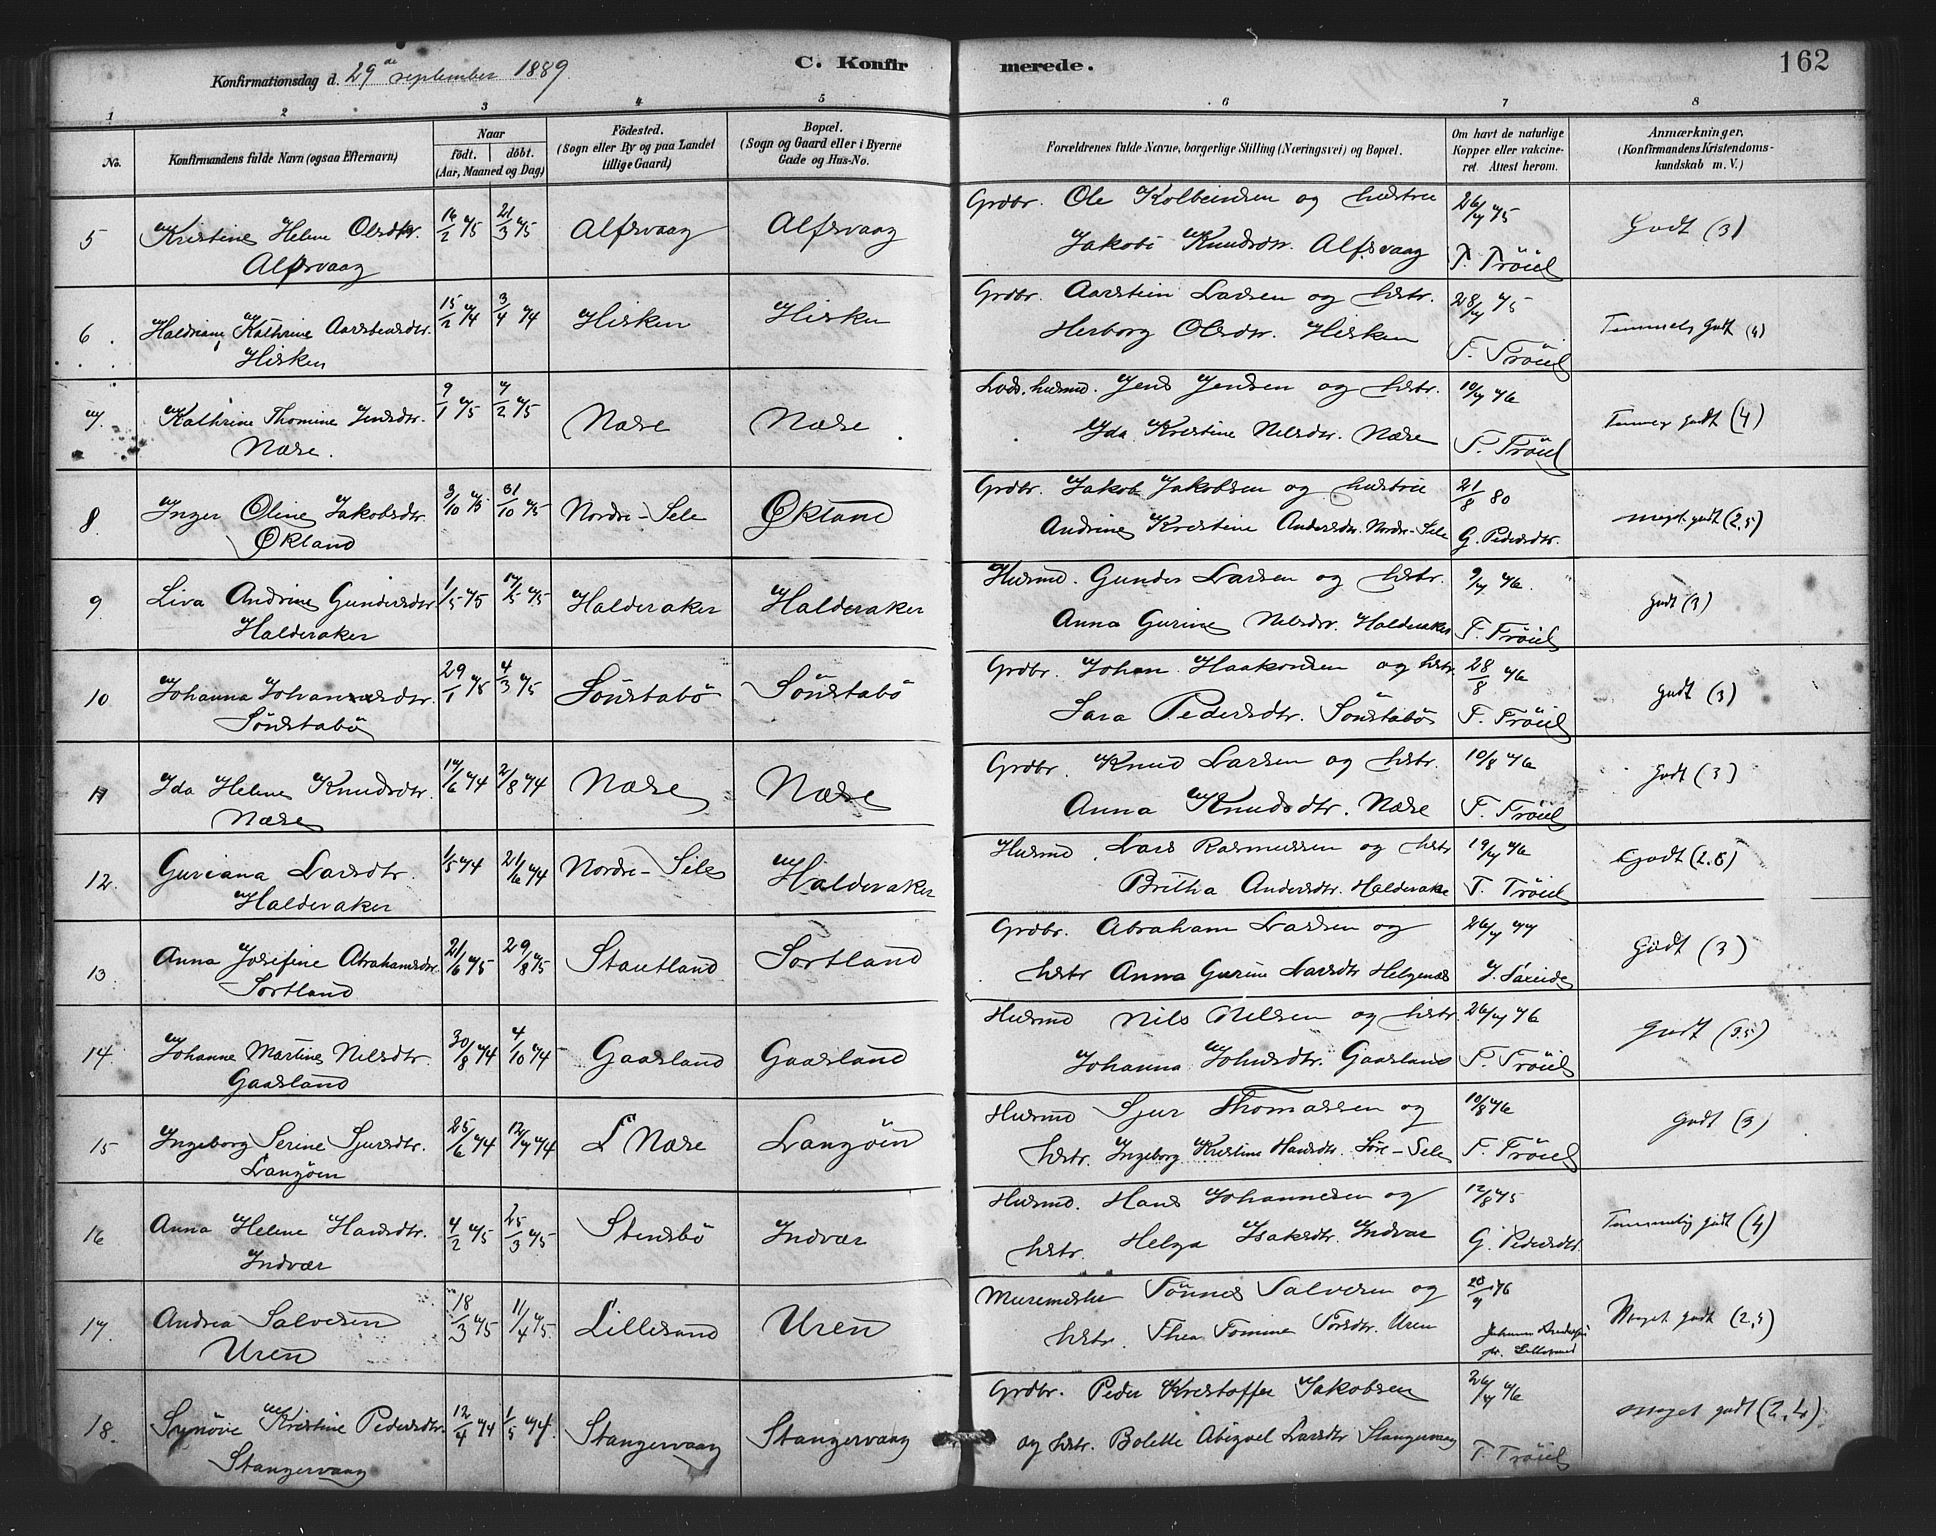 162
Konfirmationsdag d. 29de september 1889
C. Konfirmerede.
1 2 3 4 5 6 7 8
No.
Konfirmandens fulde Navn (ogsaa Efternavn)
Naar
födt. döbt.
(Aar, Maaned og Dag)
Födested.
(Sogn eller By og paa Landet
tillige Gaard)
Bopæl.
(Sogn og Gaard eller i Byerne
Gade og Hus-No.
Forældrenes fulde Navne, borgerlige Stilling (Næringsvei) og Bopæl.
Om havt de naturlige
Kopper eller vakcine-
ret. Attest herom.
Anmærkninger.
(Konfirmandens Kristendoms-
kundskab m. V.)
5 Kristine Helene Olsdtr. 16/2 75 21/3 75 Alfsvaag Alfsvaag Grdbr. Ole Kolbeinsen og hustru 26/7 75 Godt (3)
Alfsvaag Jakobi Knudsdtr. Alfsvaag T. Tröiel
6. Haldriane Kathrine Aarstensdtr. 15/2 74 3/4 74 Hisken Hisken Grdbr. Aarstein Larsen og hstr. 28/7 75 Temmelig Godt (4)
Hisken Herborg Olsdtr. Hisken T. Tröiel
7. Kathrine Thomine Jensdtr. 9/1 75 7/2 75 Næse Næse Lods. husmd. Jens Jensen og hstr. 10/7 76 godt (4)
Næse. Ida Kristine Nilsdtr. Næse T. Tröiel
8. Inger Oline Jakobsdtr. 3/10 75 31/10 75 Nordre-Sele Økland Grdbr. Jakob Jakobsen og hustru 21/8 80 meget godt (2,5)
Økland Andrine Kristine Andersdtr. Nordre-Sele G. Pedersdtr.
9. Liva Andrine Gundersdtr 1/5 75 17/5 75 Halderaker Halderaker Husmd. Gunder Larsen og hstr. 9/7 76. godt (3)
Halderaker Anna Gurine Nilsdtr. Halderaker T. Tröiel
10 Johanna Johannesdtr. 29/1 75 4/3 75 Sönstabö Sönstabö Grdbr. Johan Haakonsen og hstr 28/8 76 godt (3)
Sönstabö Sara Pedersdtr. Sönstabö T. Tröiel
11 Ida Helene Knudsdtr. 17/6 74 2/8 74 Næse Næse Grdbr. Knud Larsen og hstr. 10/8 76 godt (3)
Næse Anna Knudsdtr. Næse T. Tröiel
12. Guriana Larsdtr. 1/5 74 21/6 74 Nordre-Sele Halderaker Husmd. Lars Rasmussen og hstr 19/7 76 Godt (2.8)
Halderaker Britha Andersdtr. Halderaker T. Tröiel
13. Anna Josefine Abrahamsdtr 21/6 75 29/8 75 Stautland Sortland Grdbr. Abraham Larsen og 26/7 77 Godt (3)
Sortland hstr Anna Gurine Larsdtr Helgenæs
14. Johanne Martine Nilsdtr. 30/8 74 4/10 74 Gaasland Gaasland Husmd Nils Nilsen og hstr. 26/7 76 Godt (3.5)
Gaasland Johanna Johnsdtr. Gaasland T. Tröiel
15 Ingeborg Serine Sjursdtr. 25/6 74 12/7 74 L Næse Langöen Husmd Sjur Thomassen og 10/8 76 Godt (3)
Langöen hstr. Ingeborg Kristine Hansdtr. Söre-Sele T. Tröiel
16 Anna Helene Hansdtr. 4/2 75 25/3 75 Stensbö Indvær Husmd. Hans Johannesen og 12/8 75 Temmelig godt (4)
Indvær hstr. Helga Isaksdtr. Indvær G. Pedersdtr.
17. Andrea Salvesen 18/3 75 11/4 75 Lillesand Uren Murmester Tönnes Salvesen og 28/9 76 Meget godt (2,5)
Uren hstr. Thea Tomine Torsdtr. Uren
18. Synöve Kristine Pedersdtr. 12/4 74 1/5 74. Stangervaag Stangervaag Grdbr. Peder Kristoffer Jakobsen 26/7 76 Meget godt (2,4)
Stangervaag og hstr. Bolette Abigael Larsdtr Stangervaag T. Tröiel